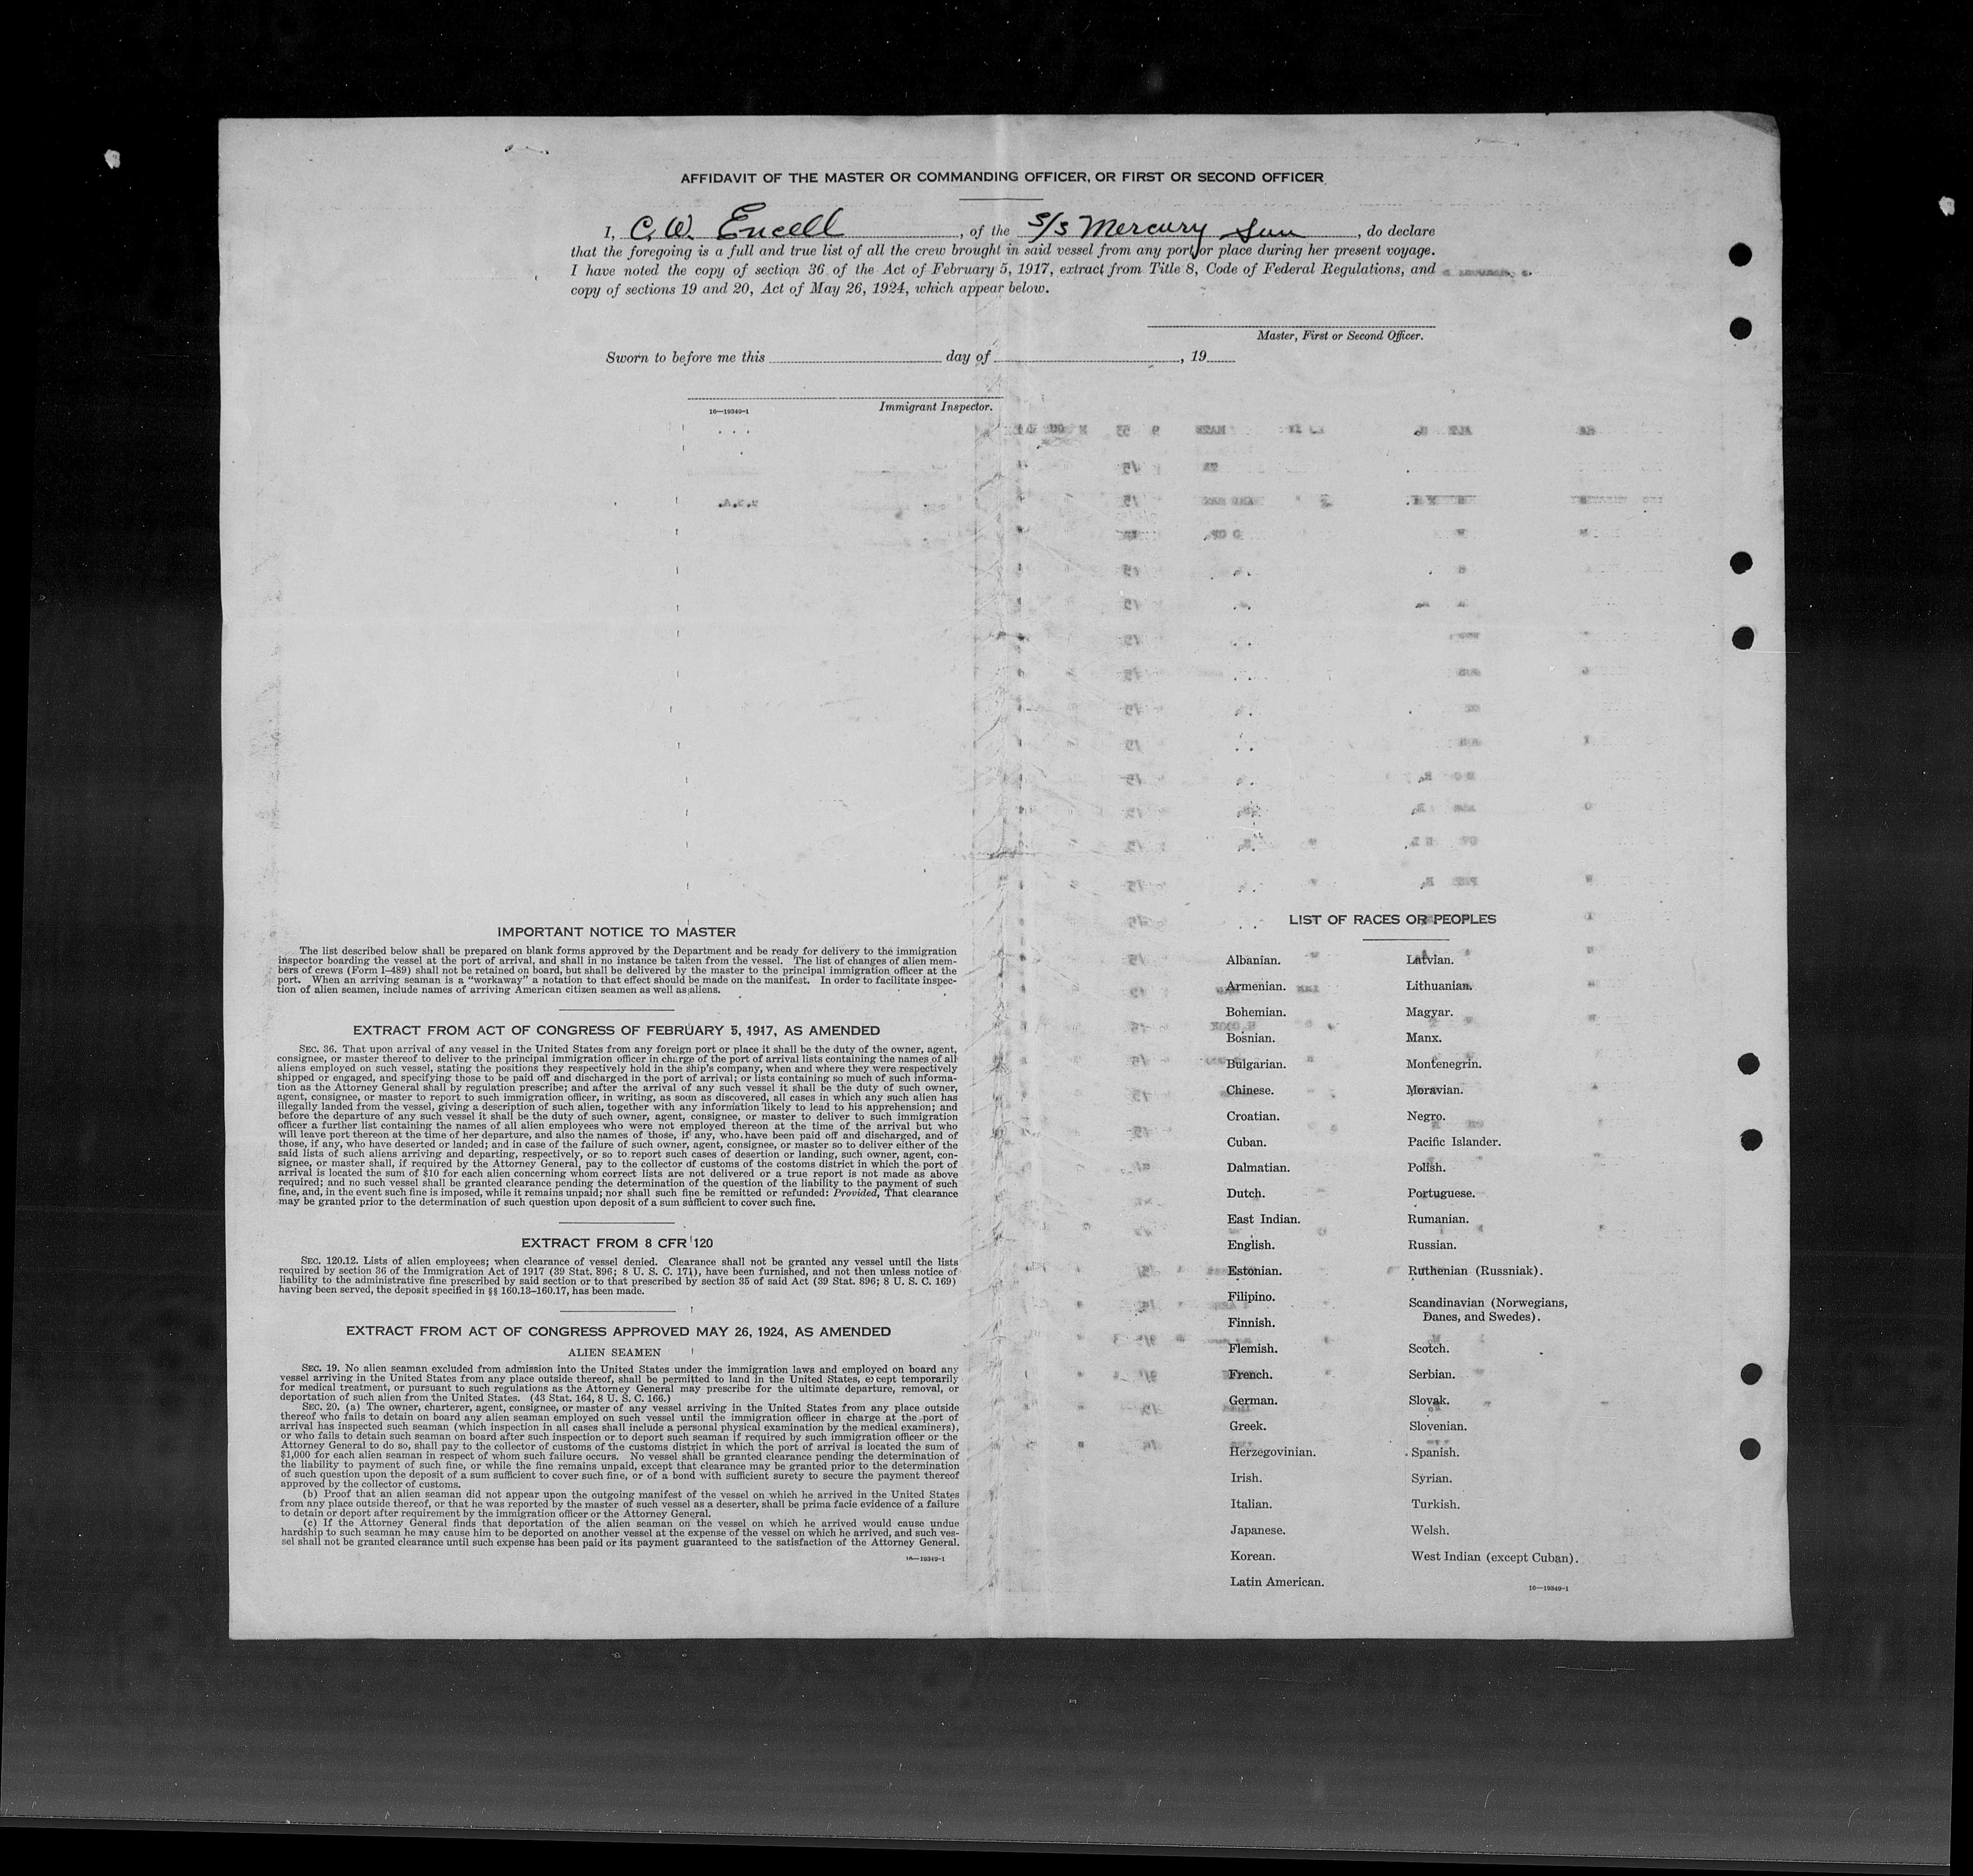 AFFIDAVIT OF THE MASTER OR COMMANDING OFFICER, OR FIRST OR SECOND OFFICER
I, C. W. Encell, of the S/S Mercury Sun, do declare
that the foregoing is a full and true list of all the crew brought in said vessel from any port or place during her present voyage.
I have noted the copy of section 36 of the Act of February 5, 1917, extract from Title 8, Code of Federal Regulations, and
copy of sections 19 and 20, Act of May 26, 1924, which appear below.
Master, First or Second Officer.
Sworn to before me this day of , 19
Immigrant Inspector.
16—19349-1
IMPORTANT NOTICE TO MASTER
The list described below shall be prepared on blank forms approved by the Department and be ready for delivery to the immigration
inspector boarding the vessel at the port of arrival, and shall in no instance be taken from the vessel. The list of changes of alien mem-
bers of crews (Form I-489) shall not be retained on board, but shall be delivered by the master to the principal immigration officer at the
port. When an arriving seaman is a “workaway” a notation to that effect should be made on the manifest. In order to facilitate inspec-
tion of alien seamen, include names of arriving American citizen seamen as well as aliens.
EXTRACT FROM ACT OF CONGRESS OF FEBRUARY 5, 1917, AS AMENDED
SEC. 36. That upon arrival of any vessel in the United States from any foreign port or place it shall be the duty of the owner, agent,
consignee, or master thereof to deliver to the principal immigration officer in charge of the port of arrival lists containing the names of all
aliens employed on such vessel, stating the positions they respectively hold in the ship's company, when and where they were respectively
shipped or engaged, and specifying those to be paid off and discharged in the port of arrival; or lists containing so much of such informa-
tion as the Attorney General shall by regulation prescribe; and after the arrival of any such vessel it shall be the duty of such owner,
agent, consignee, or master to report to such immigration officer, in writing, as soon as discovered, all cases in which any such alien has
illegally landed from the vessel, giving a description of such alien, together with any information likely to lead to his apprehension; and
before the departure of any such vessel it shall be the duty of such owner, agent, consignee, or master to deliver to such immigration
officer a further list containing the names of all alien employees who were not employed thereon at the time of the arrival but who
will leave port thereon at the time of her departure, and also the names of those, if any, who have been paid off and discharged, and of
those, if any, who have deserted or landed; and in case of the failure of such owner, agent, consignee, or master so to deliver either of the
said lists of such aliens arriving and departing, respectively, or so to report such cases of desertion or landing, such owner, agent, con-
signee, or master shall, if required by the Attorney General, pay to the collector of customs of the costoms district in which the port of
arrival is located the sum of $10 for each alien concerning whom correct lists are not delivered or a true report is not made as above
required; and no such vessel shall be granted clearance pending the determination of the question of the liability to the payment of such
fine, and, in the event such fine is imposed, while it remains unpaid; nor shall such fine be remitted or refunded: Provided, That clearance
may be granted prior to the determination of such question upon deposit of a sum sufficient to cover such fine.
EXTRACT FROM 8 CFR 120
SEC. 120.12. Lists of alien employees; when clearance of vessel denied. Clearance shall not be granted any vessel until the lists
required by section 36 of the Immigration Act of 1917 (39 Stat. 896; 8 U. S. C. 171), have been furnished, and not then unless notice of
liability to the administrative fine prescribed by said section or to that prescribed by section 35 of said Act (39 Stat. 896; 8 U. S. C. 169)
having been served, the deposit specified in §§ 160.13–160.17, has been made.
EXTRACT FROM ACT OF CONGRESS APPROVED MAY 26, 1924, AS AMENDED
ALIEN SEAMEN
SEC. 19. No alien seaman excluded from admission into the United States under the immigration laws and employed on board any
vessel arriving in the United States from any place outside thereof, shall be permitted to land in the United States, except temporarily
for medical treatment, or pursuant to such regulations as the Attorney General may prescribe for the ultimate departure, removal, or
deportation of such alien from the United States. (43 Stat. 164, 8 U. S. C. 166.)
SEC. 20. (a) The owner, charterer, agent, consignee, or master of any vessel arriving in the United States from any place outside
thereof who fails to detain on board any alien seaman employed on such vessel until the immigration officer in charge at the port of
arrival has inspected such seaman (which inspection in all cases shall include a personal physical examination by the medical examiners),
or who fails to detain such seaman on board after such inspection or to deport such seaman if required by such immigration officer or the
Attorney General to do so, shall pay to the collector of customs of the customs district in which the port of arrival is located the sum of
$1,000 for each alien seaman in respect of whom such failure occurs. No vessel shall be granted clearance pending the determination of
the liability to payment of such fine, or while the fine remains unpaid, except that clearance may be granted prior to the determination
of such question upon the deposit of a sum sufficient to cover such fine, or of a bond with sufficient surety to secure the payment thereof
approved by the collector of customs.
(b) Proof that an alien seaman did not appear upon the outgoing manifest of the vessel on which he arrived in the United States
from any place outside thereof, or that he was reported by the master of such vessel as a deserter, shall be prima facie evidence of a failure
to detain or deport after requirement by the immigration officer or the Attorney General.
(c) If the Attorney General finds that deportation of the alien seaman on the vessel on which he arrived would cause undue
hardship to such seaman he may cause him to be deported on another vessel at the expense of the vessel on which he arrived, and such ves-
sel shall not be granted clearance until such expense has been paid or its payment guaranteed to the satisfaction of the Attorney General.
16—19349-1
LIST OF RACES OR PEOPLES
Albanian.
Armenian.
Bohemian.
Bosnian.
Bulgarian.
Chinese.
Croatian.
Cuban.
Dalmatian.
Dutch.
East Indian.
English.
Estonian.
Filipino.
Finnish.
Flemish.
French.
German.
Greek.
Herzegovinian.
Irish.
Italian.
Japanese.
Korean.
Latin American.
Latvian.
Lithuanian.
Magyar.
Manx.
Montenegrin.
Moravian.
Negro.
Pacific Islander.
Polish.
Portuguese.
Rumanian.
Russian.
Ruthenian (Russniak).
Scandinavian (Norwegians,
Danes, and Swedes).
Scotch.
Serbian.
Slovak.
Slovenian.
Spanish.
Syrian.
Turkish.
Welsh.
West Indian (except Cuban).
16—19349-1